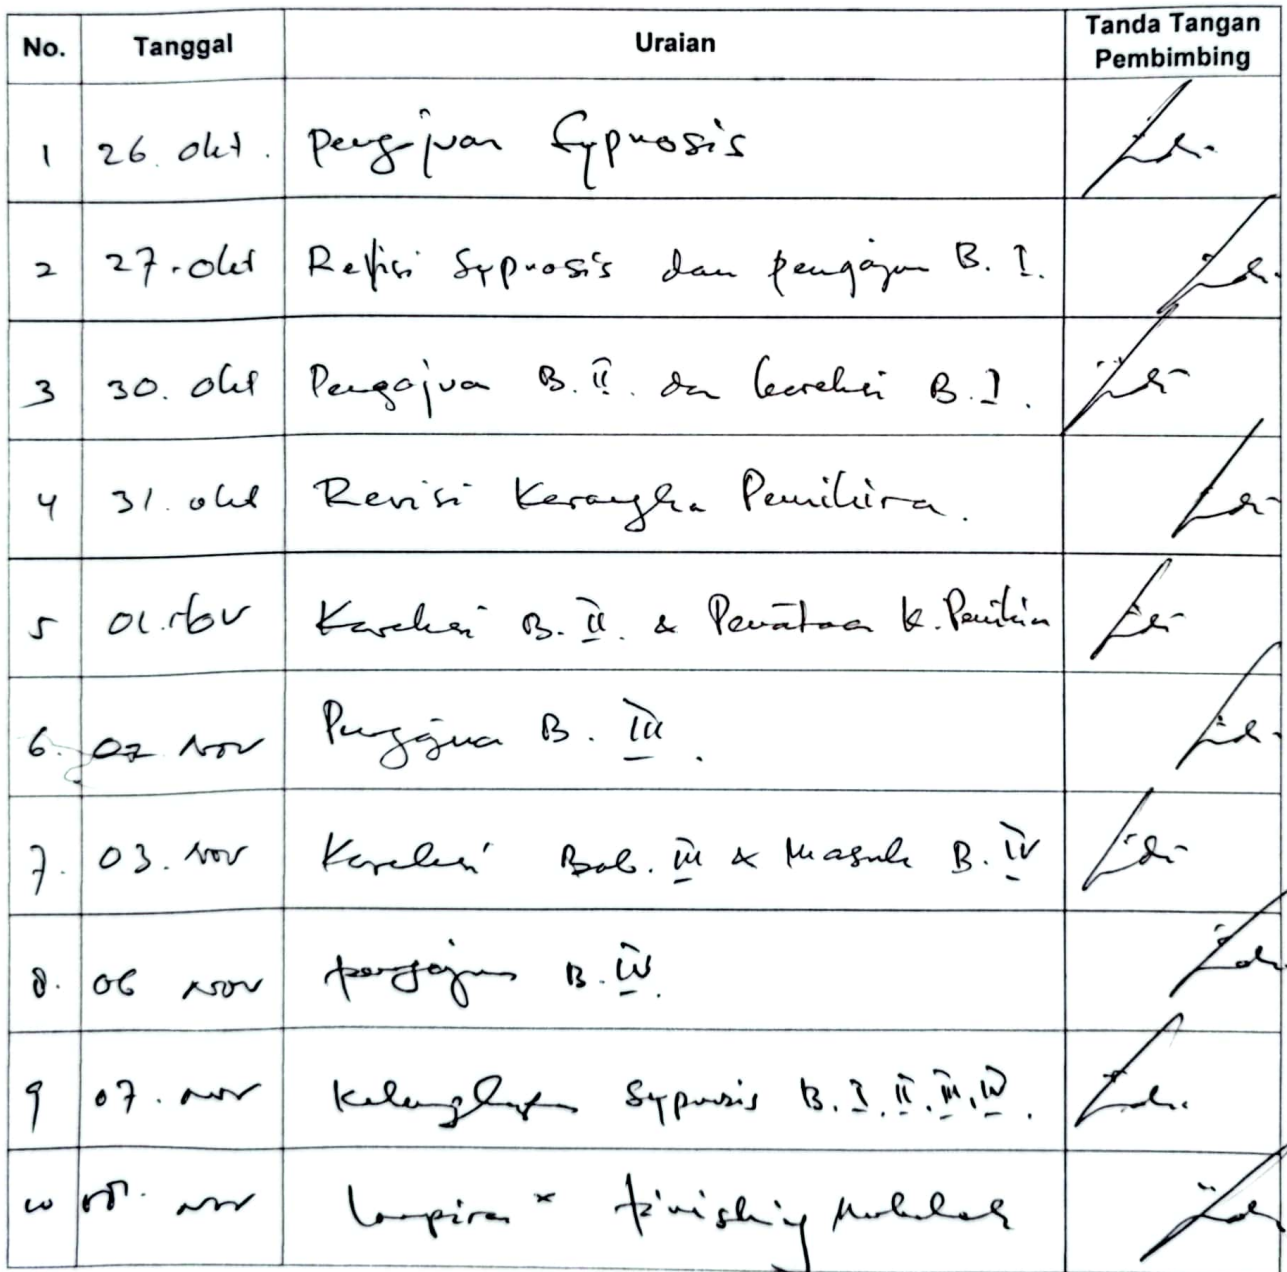 No. Tanggal Uraian Tanda Tangan Pembimbing
1 26 Okt. Pengajuan Sypnosis
2 27. Okt Refisi Sypnosis dan pengajuan B. I.
3 30. Okt Pengajuan B. II. dan koreksi B. I.
4 31. Okt Revisi Kerangka Pemikiran.
5 01. Nov Koreksi B. II. & Penataan K. Pemikiran
6. 02 Nov Pengajuan B. III.
7. 03. Nov Koreksi Bab. III & Masuk B. IV
8. 06 Nov pengajuan B. IV.
9 07. Nov Kelengkapan Sypnosis B. I, II, III, IV.
10 08. Nov Lampiran finishing